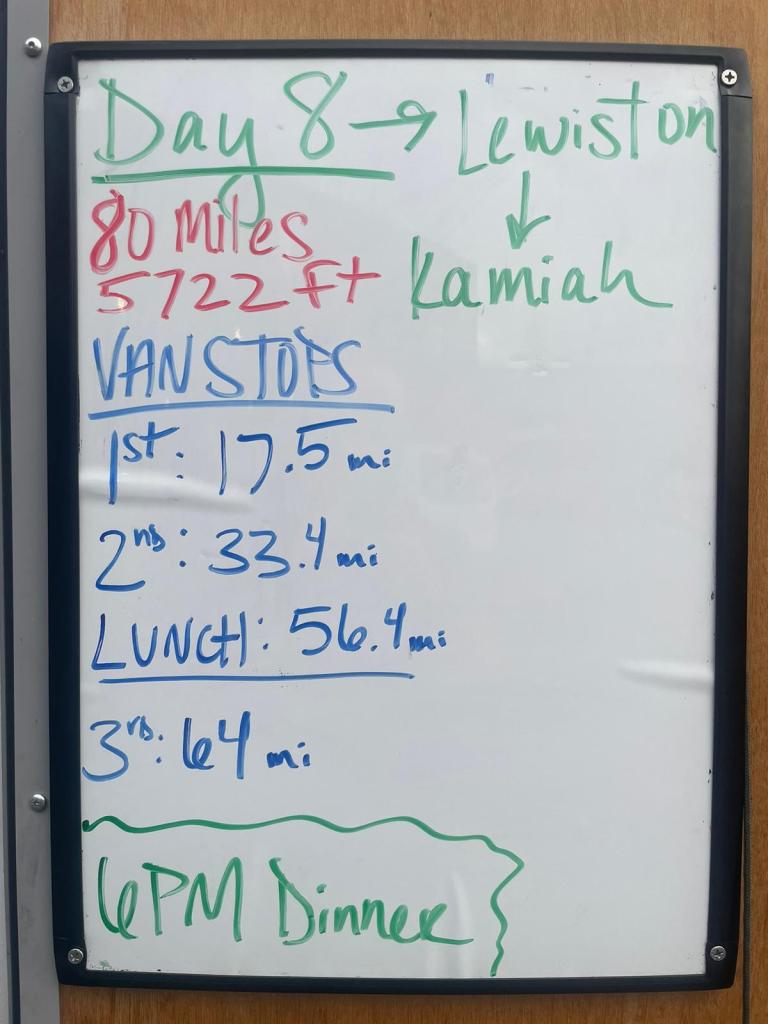 Day 8 → Lewiston
↓
Kamiah
80 Miles
5722 ft
VAN STOPS
1st: 17.5 mi
2nd: 33.4 mi
LUNCH: 56.4 mi
3rd: 64 mi
6PM Dinner